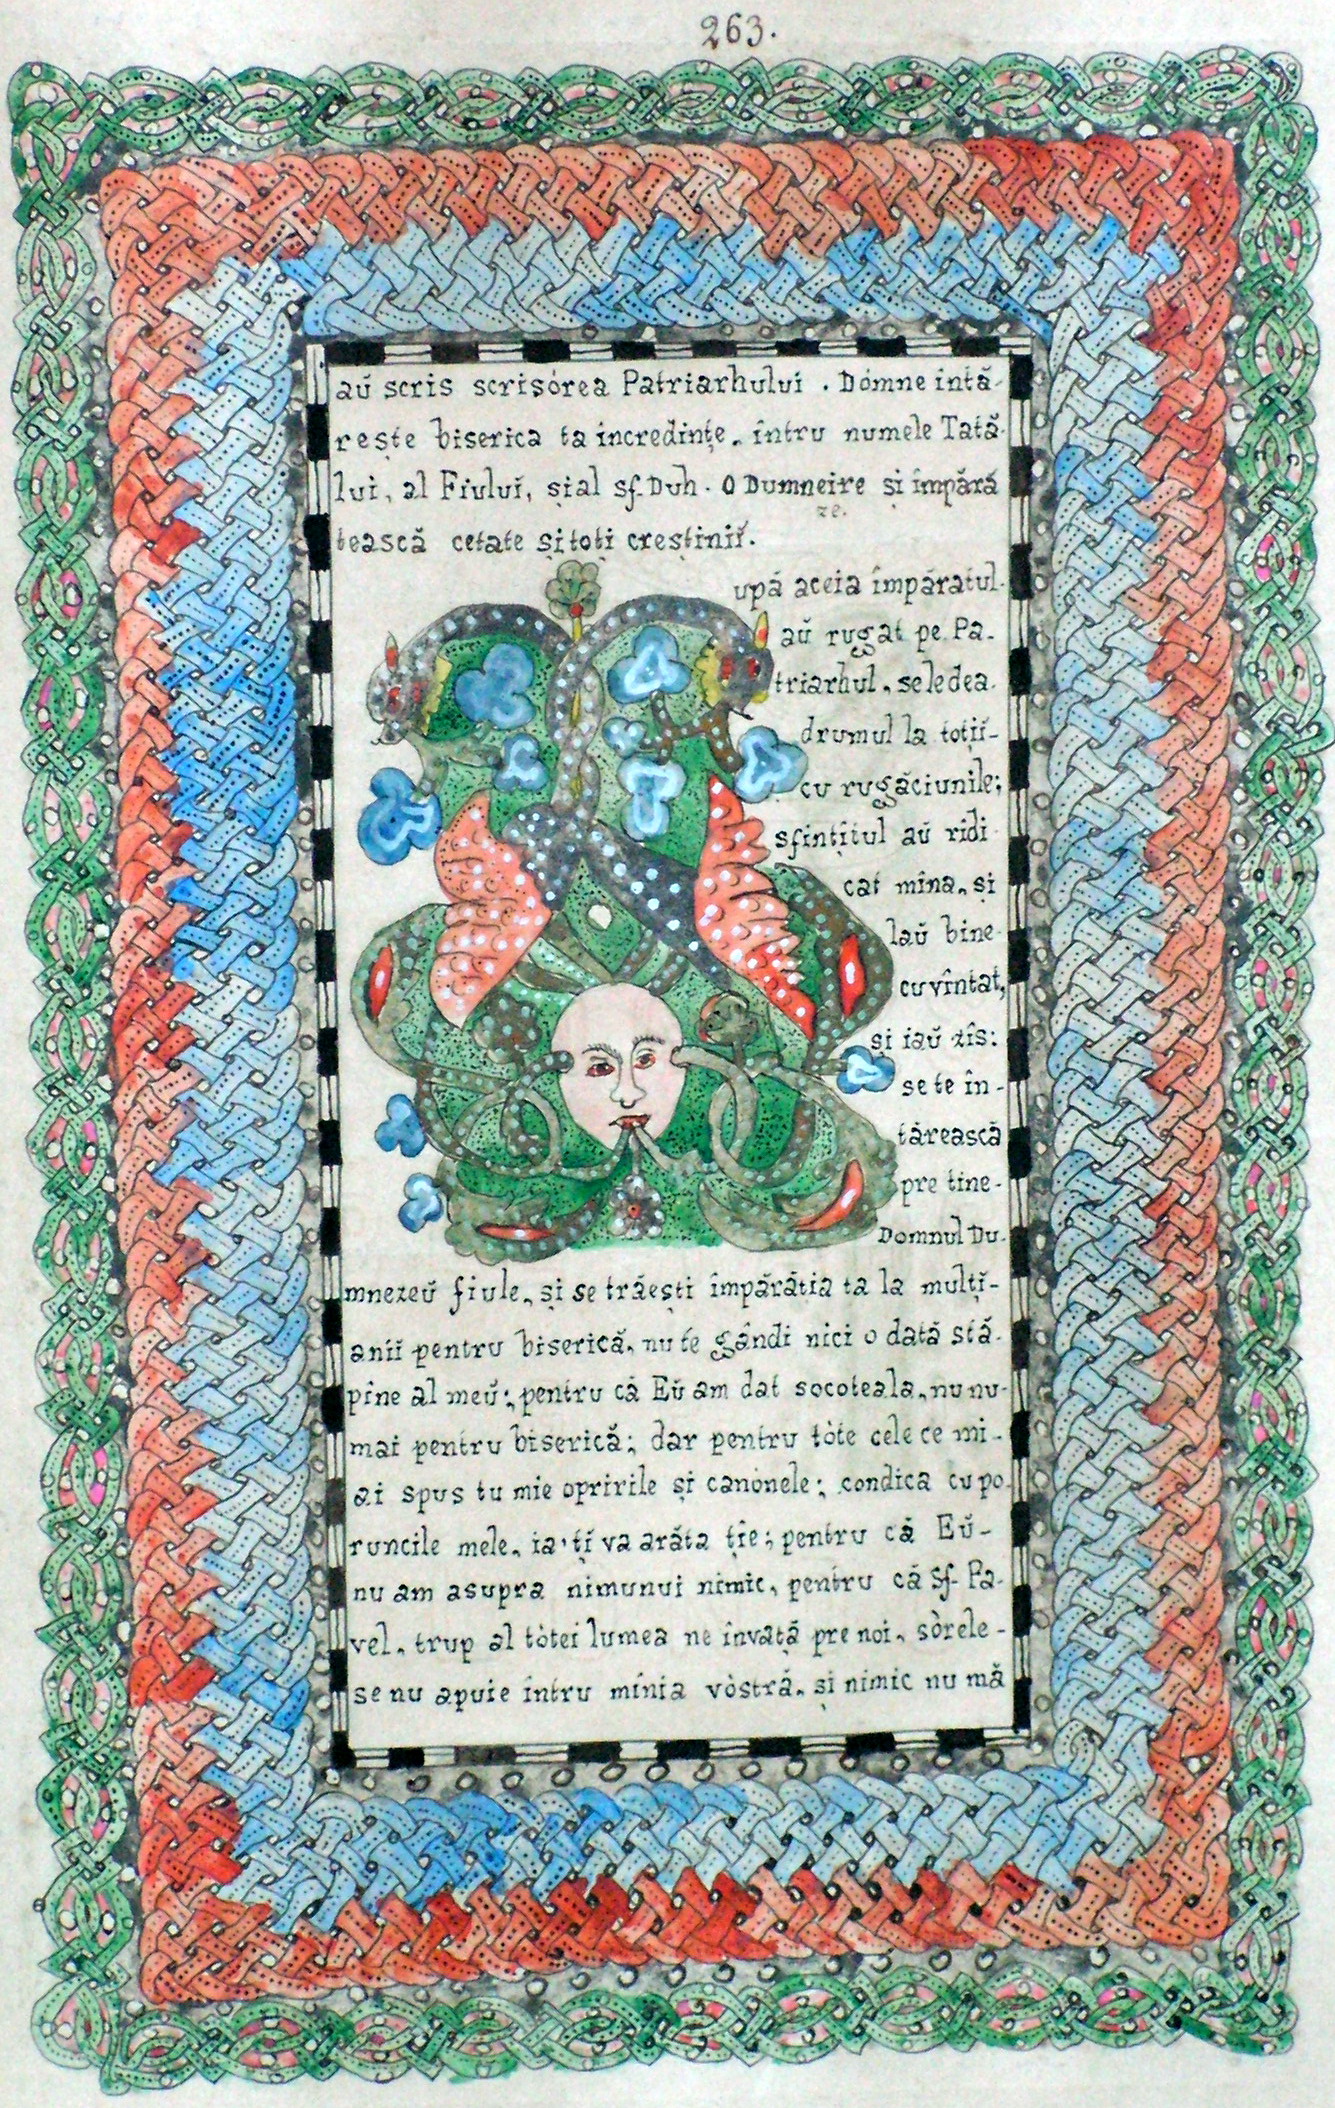 263.
aŭ scris scrisórea Patriarhului . Dómne intă-
rește biserica ta incredințe. întru numele Tată-
lui, al Fiuluĭ, șial sf. Duh . O Dumneire și împără
ze.
tească cetate și toți creștiniĭ.
upă aceia împăratul-
aŭ rugat pe Pa-
triarhul. seledea-
drumul la toțiĭ-
cu rugăciunile;
sfințitul aŭ ridi-
cat mîna. și
laŭ bine-
cuvîntat,
și iaŭ zîs:
se te în-
tărească
pre tine-
Domnul Du-
mnezeŭ fiule. și se trăești împărăția ta la mulți-
anii pentru biserică. nu te gândi nici o dată stă-
pîne al meŭ; pentru că Eŭ am dat socoteala. nu nu-
mai pentru biserică; dar pentru tòte cele ce mi-
ai spus tu mie opririle și canònele; condica cu po
runcile mele. ia'țĭ va arăta ție; pentru că Eŭ-
nu am asupra nimunui nimic. pentru că Sf. Pa-
vel. trup al tòtei lumea ne învață pre noi. sòrele-
se nu apuie întru mînia vòstră. și nimic nu mă